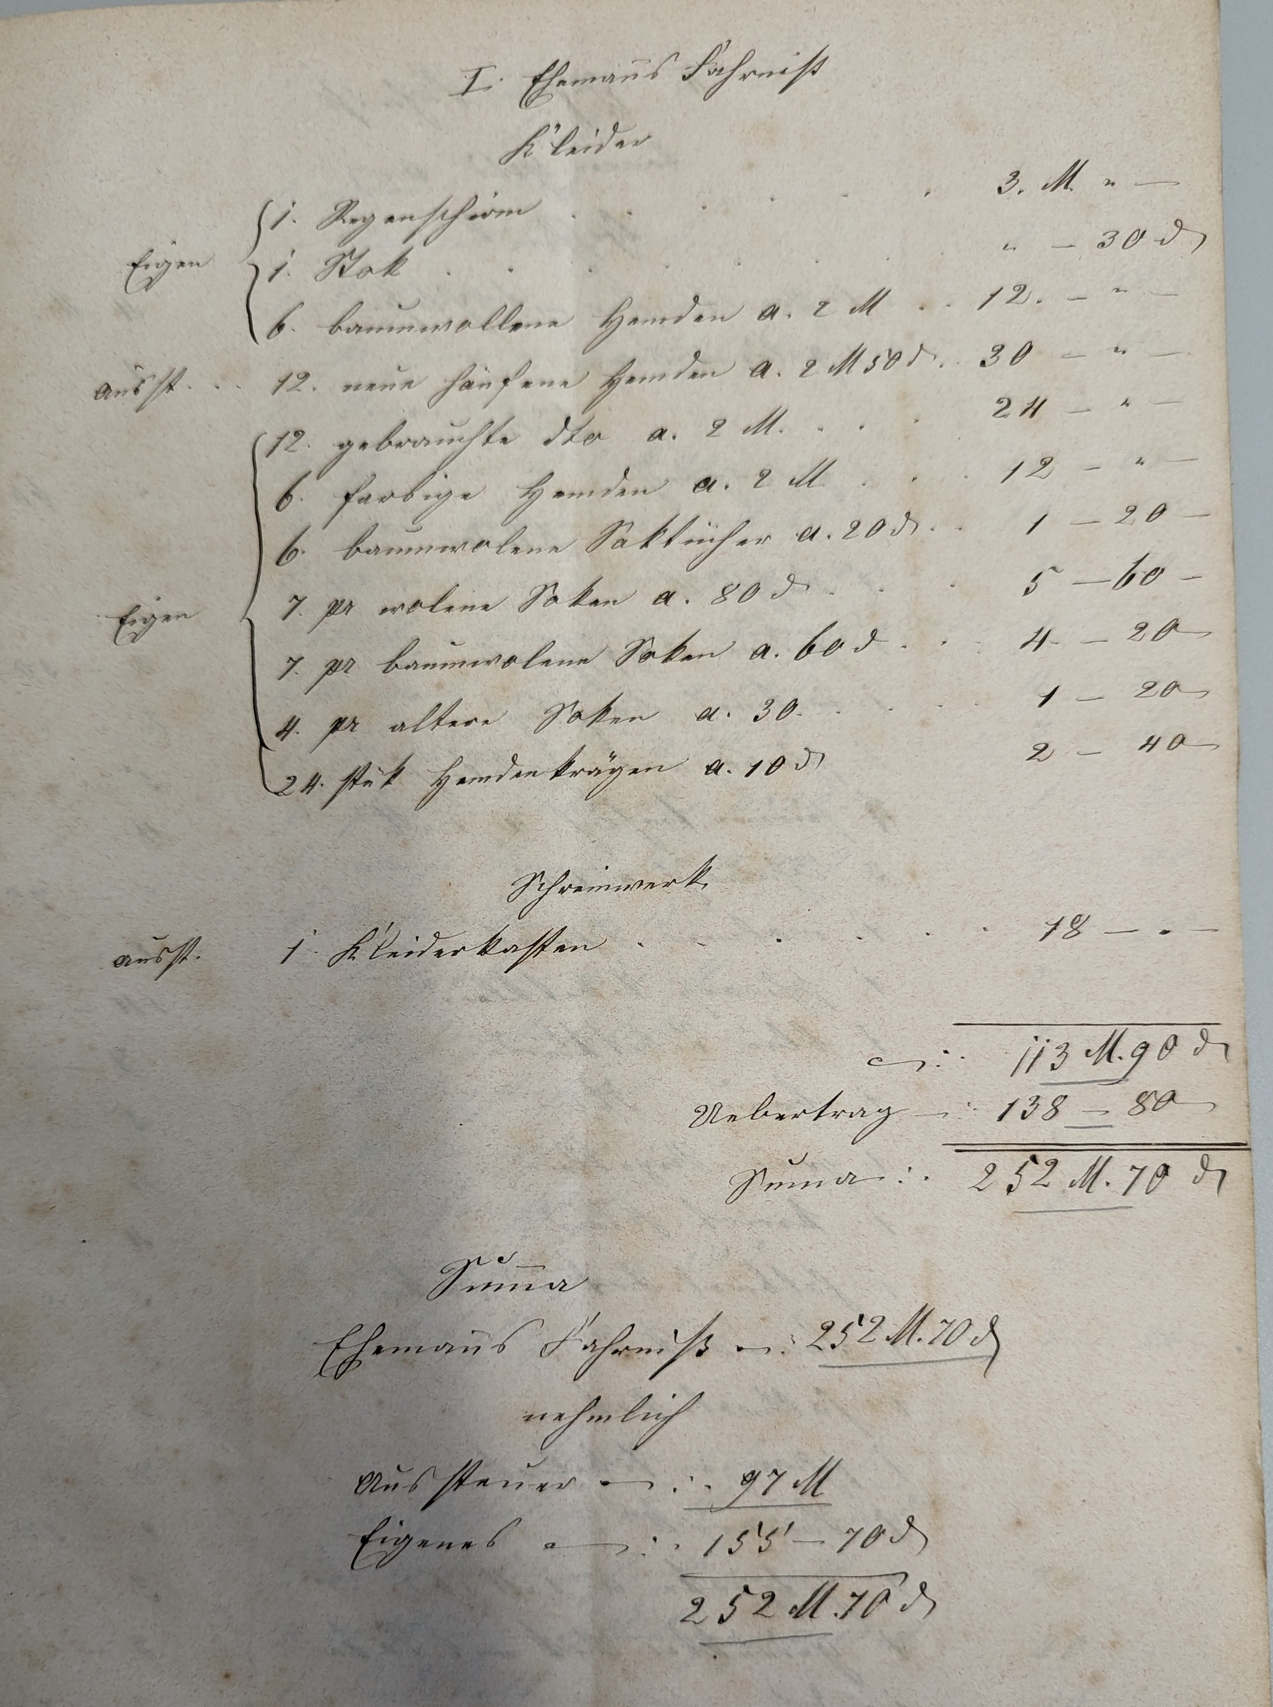 I. Ehemañs Fahrniß
Kleider
1. Regenschirm . . . . . 3. M. " —
Eigen 1. Stok . . . . . . . " — 30 ₰
6. baumwollene Hemden a. 2 M . . 12. — " —
Ausst. . . 12. neue hänfene Hemden a. 2 M 50 ₰. . 30 — " —
12. gebrauchte dto a. 2 M. . . . 24 — " —
6. farbige Hemden a. 2 M . . . 12 — " —
6. baumwolene Saktücher a. 20 ₰ . . 1 — 20 —
Eigen 7. pr wolene Soken a. 80 ₰ . . . 5 — 60 —
7. pr baumwolene Soken a. 60 ₰ . . . 4 — 20 —
4. pr altere Soken a. 30. . . . . 1 — 20 —
24. stük Hemdenkrägen a. 10 ₰ 2 — 40 —
Schreinwerk
Ausst. 1 Kleiderkasten . . . . . . 18 — " —
113 M. 90 ₰
Uebertrag —: 138 — 80 —
Suma :. 252 M. 70 ₰
Sum̄a
Ehemañs Fahrniß —: 252 M. 70 ₰
nehmlich
Aussteuer — : . 97 M
Eigenes — : . 155 — 70 ₰
252 M. 70 ₰